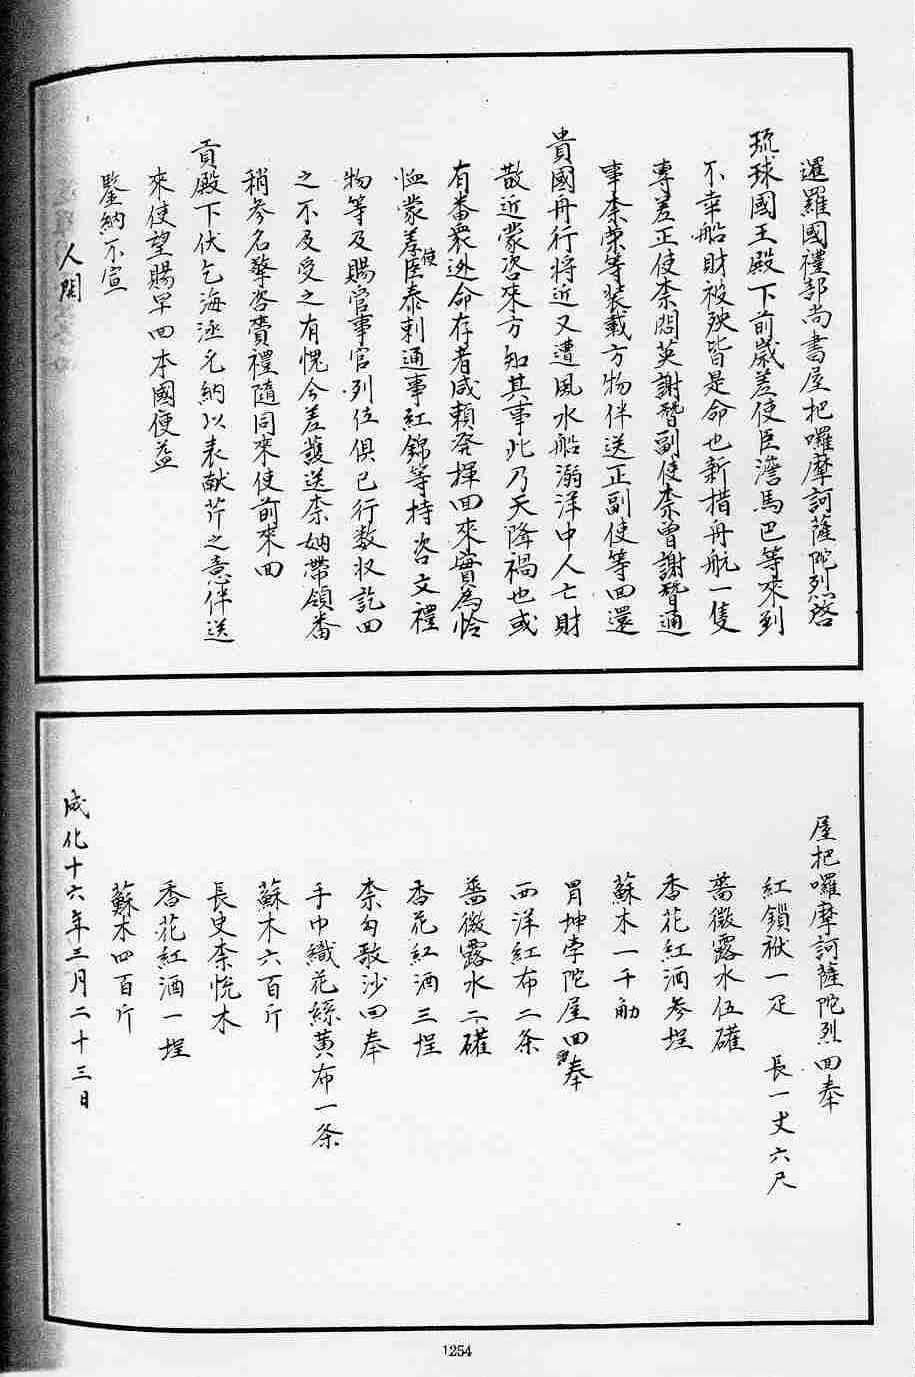 暹羅國禮部尚書屋把囉摩訶薩陀烈啓
琉球國王殿下前歲差使臣澹馬巴等來到
不幸船財被殃皆是命也新措舟航一隻
專差正使柰閟英謝替副使柰曾謝替通
事柰榮等装載方物伴送正副使等回還
貴國舟行將近又遭風水船溺洋中人亡財
散近蒙咨來方知其事此乃天降禍也或
有番衆逊命存者咸賴発揮回來實為恰
恤蒙差使臣泰刺通事紅錦等持咨文禮
物等及賜官事官列位俱已行数収訖回
之不及受之有愧今差護送柰妠帶領番
稍參名擎咨賷禮隨同來使前來回
貢殿下伏乞海涵允納以表献芹之意伴送
來使望賜早回本國便益
鑒納不宣
人閞
屋把囉摩訶薩陀烈回奉
紅鎖袱一疋 長一丈六尺
薔薇露水伍礶
香花紅酒參埕
蘇木一千觔
胃坤孛陀屋回奉
西洋紅布二条
薔薇露水二礶
香花紅酒三埕
柰勾敬沙回奉
手巾織花絲黄布一条
蘇木六百斤
長史柰悦木
香花紅酒一埕
蘇木四百斤
成化十六年三月二十三日
1254